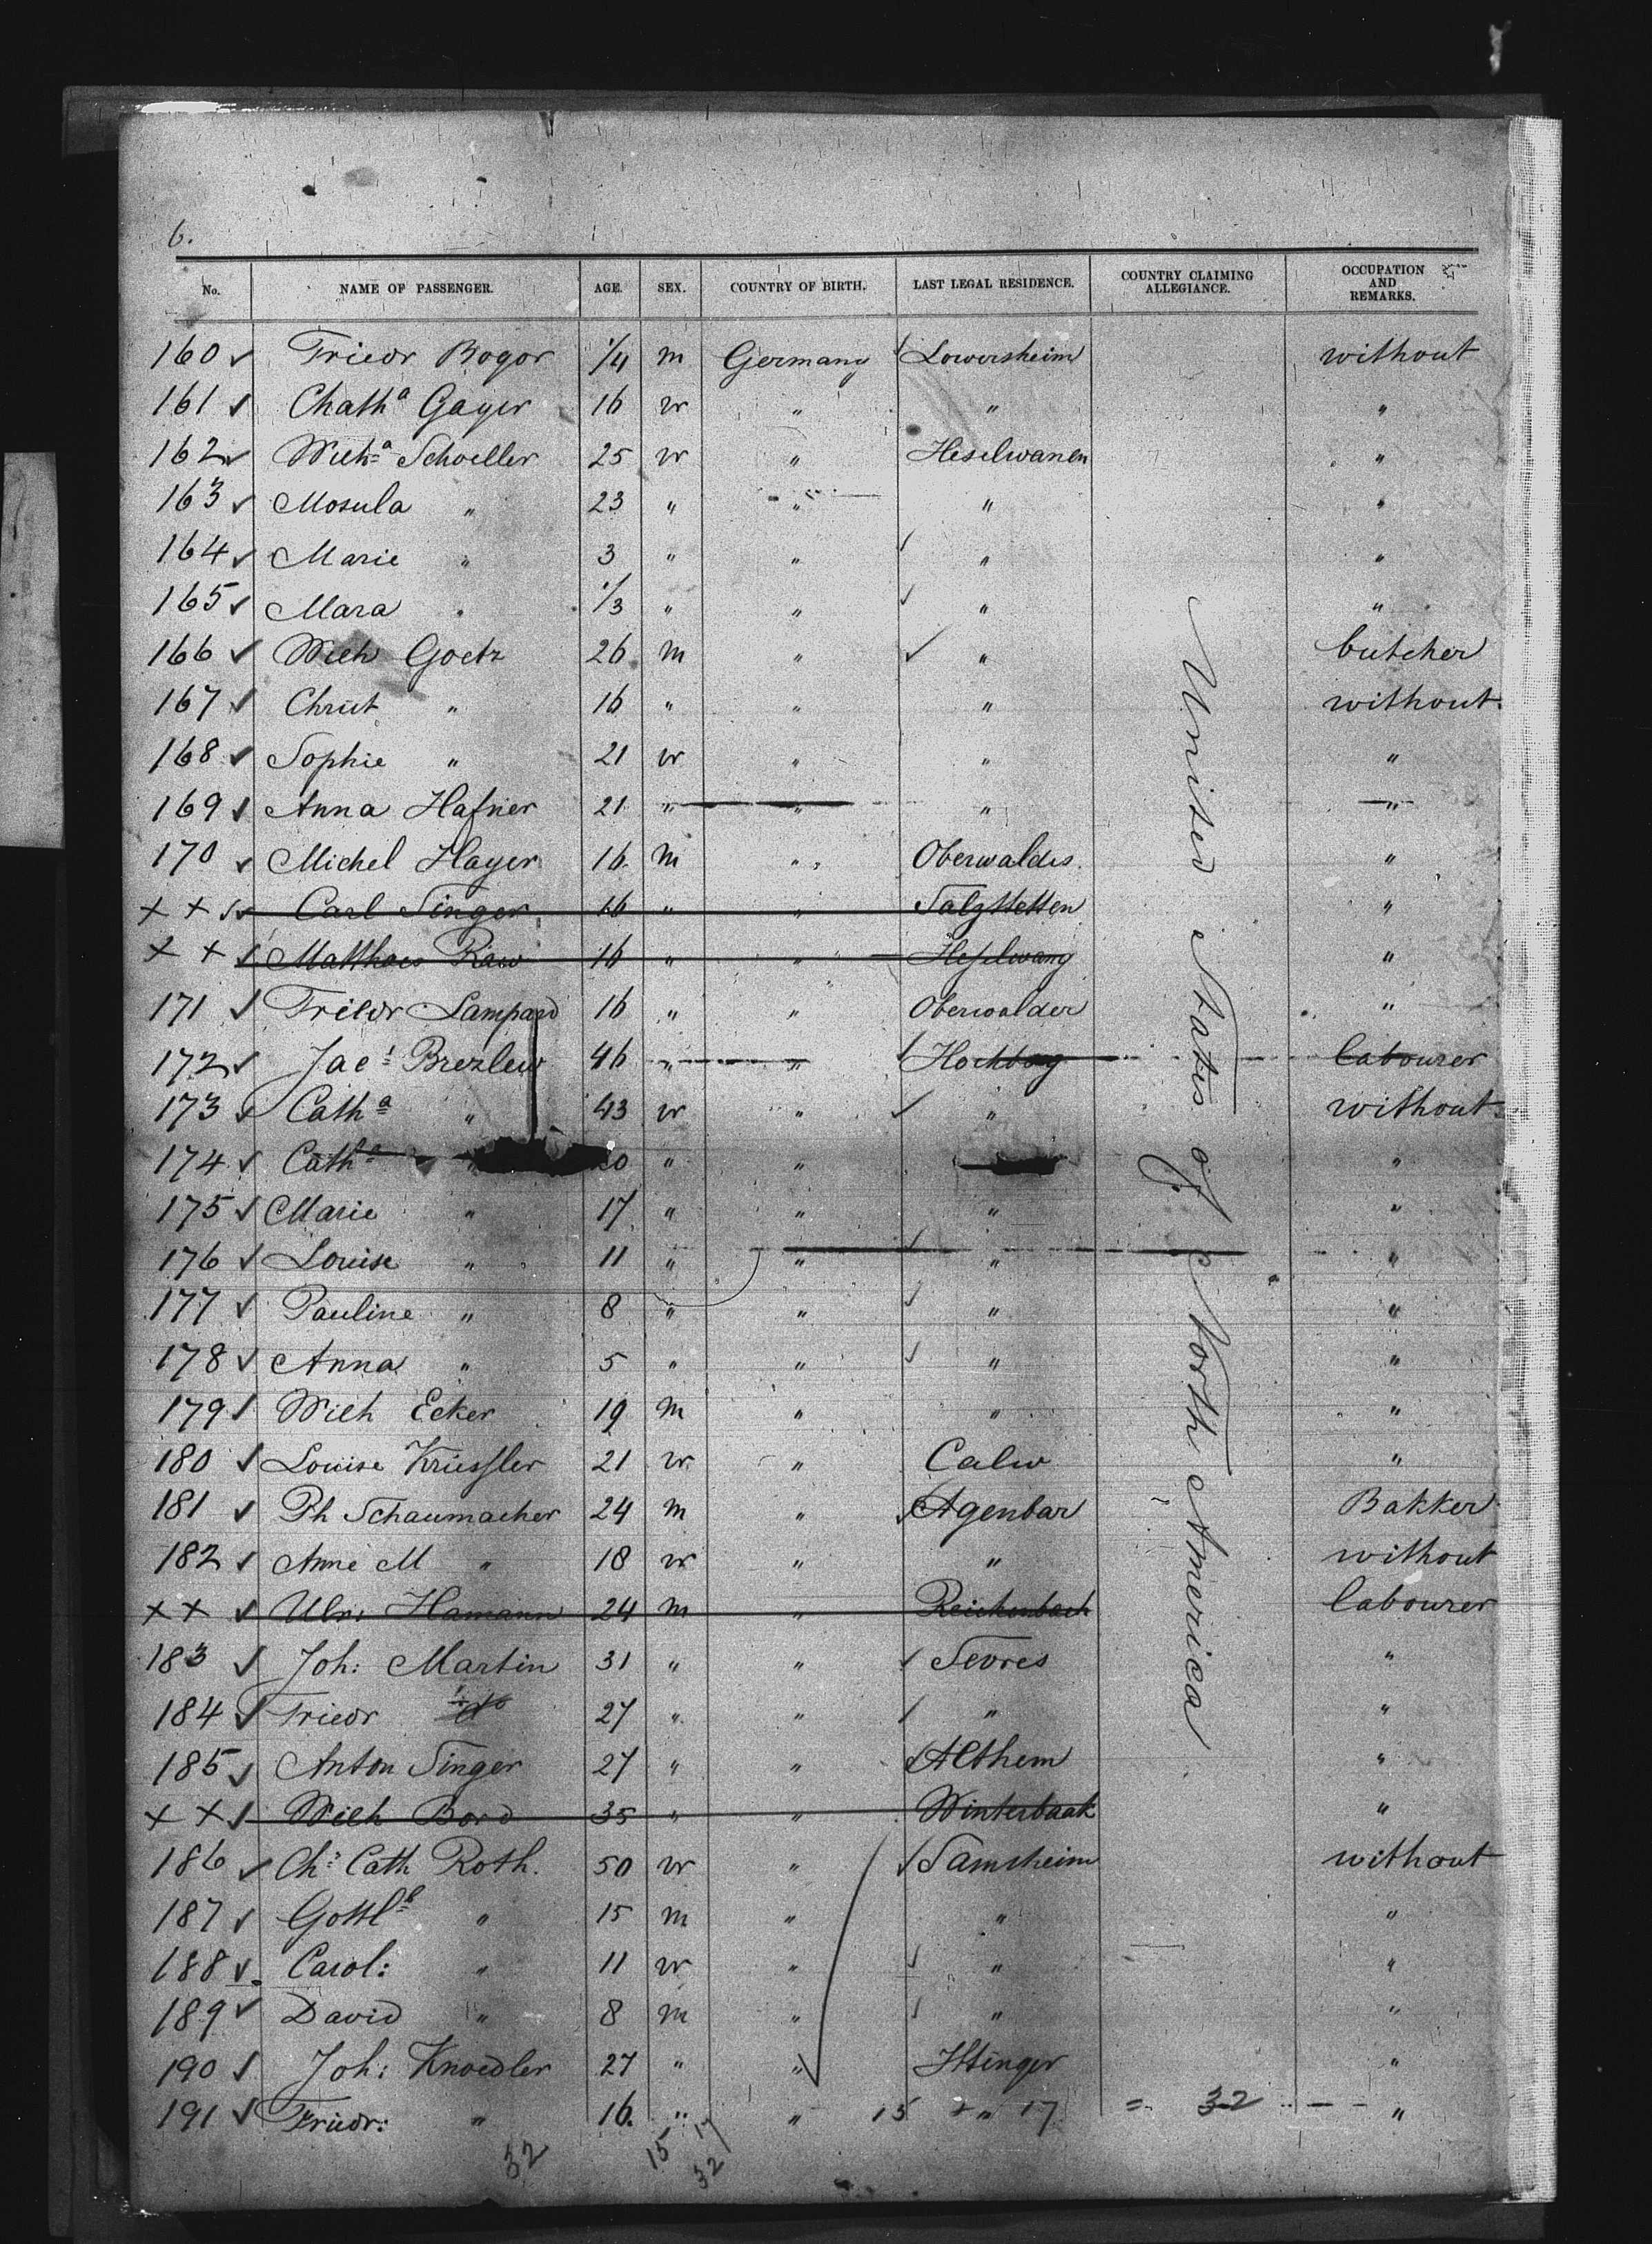 6.
No. NAME OF PASSENGER. AGE. SEX. COUNTRY OF BIRTH. LAST LEGAL RESIDENCE. COUNTRY CLAIMING ALLEGIANCE. OCCUPATION AND REMARKS.
160 Friedr Boger 1/4 m Germany Lowersheim without
161 Chath<sup>a</sup> Gayer 16 w " " "
162 Wilh<sup>a</sup> Schoeller 25 w " Heselwanen "
163 Mosula " 23 " " " "
164 Marie " 3 " " " "
165 Mara " 1/3 " " " "
166 Wilh Goetz 26 m " " butcher
167 Christ " 16 " " " without
168 Sophie " 21 w " " "
169 Anna Hafner 21 " " " "
170 Michel Hayer 16 m " Oberwaldis "
+ + Carl Singer 16 " " Salzstetten "
+ + Matthaes Raw 16 " " Heselwang "
171 Friedr Lampard 16 " " Oberwalder "
172 Jac: Brezlew 46 " " Hochberg labourer
173 Cath<sup>a</sup> " 43 w " " without
174 Cath<sup>a</sup> " " " "
175 Marie " 17 " " " "
176 Louise " 11 " " " "
177 Pauline " 8 " " " "
178 Anna " 5 " " " "
179 Wilh Ecker 19 m " " "
180 Louise Kriessler 21 w " Calw "
181 Ph Schaumacher 24 m " Agenbar Bakker
182 Anne M " 18 w " " without
+ + Ulr: Hamann 24 m " Reichenbach labourer
183 Joh: Martin 31 " " Sevres "
184 Friedr 27 " " " "
185 Anton Singer 27 " " Althem "
+ + Wilh Bord 35 " " Winterbaak "
186 Ch: Cath Roth. 50 w " Samsheim without
187 Gottl<sup>b</sup> " 15 m " " "
188 Carol: " 11 w " " "
189 David " 8 m " " "
190 Joh: Knoedler 27 " " Ittinger "
191 Friedr: " 16. " " 15 + " 17 = 32 "
32 15 17
32
United States of North America